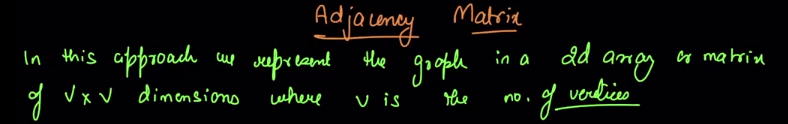 Adjacency Matrix
In this approach we represent the graph in a 2d array or matrix
of V x V dimensions where v is the no. of vertices